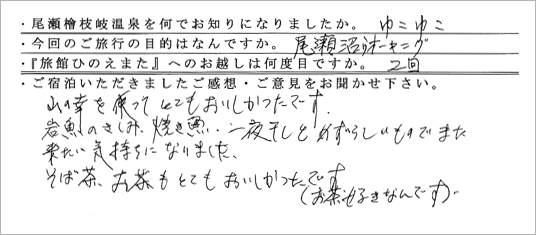 ・尾瀬檜枝岐温泉を何でお知りになりましたか。 ゆこゆこ
・今回のご旅行の目的はなんですか。 尾瀬沼ウオーキング
・『旅館ひのえまた』へのお越しは何度目ですか。 2回
・ご宿泊いただきましたご感想・ご意見をお聞かせ下さい。
山の幸を使ってとてもおいしかったです。
岩魚のさしみ、焼き魚、一夜干しとめずらしいものでまた
来たい気持ちになりました。
そば茶、お茶もとてもおいしかったです
(お茶好きなんです)。